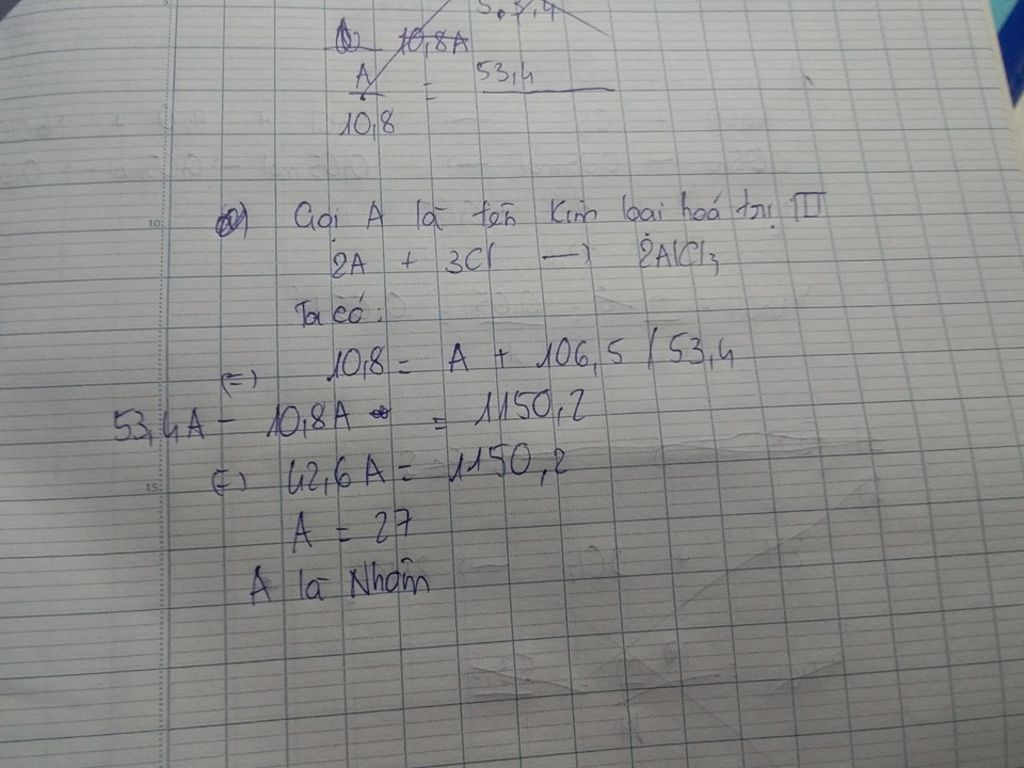 5.7,4
10,8A
A/10,8 = 53,4
a) Gọi A là tên Kim loại hoá trị III
2A + 3Cl → 2AlCl3
Ta có:
10,8 = A + 106,5 / 53,4
(=)
53,4A - 10,8A = 1150,2
(=) 42,6A = 1150,2
A = 27
A là Nhôm